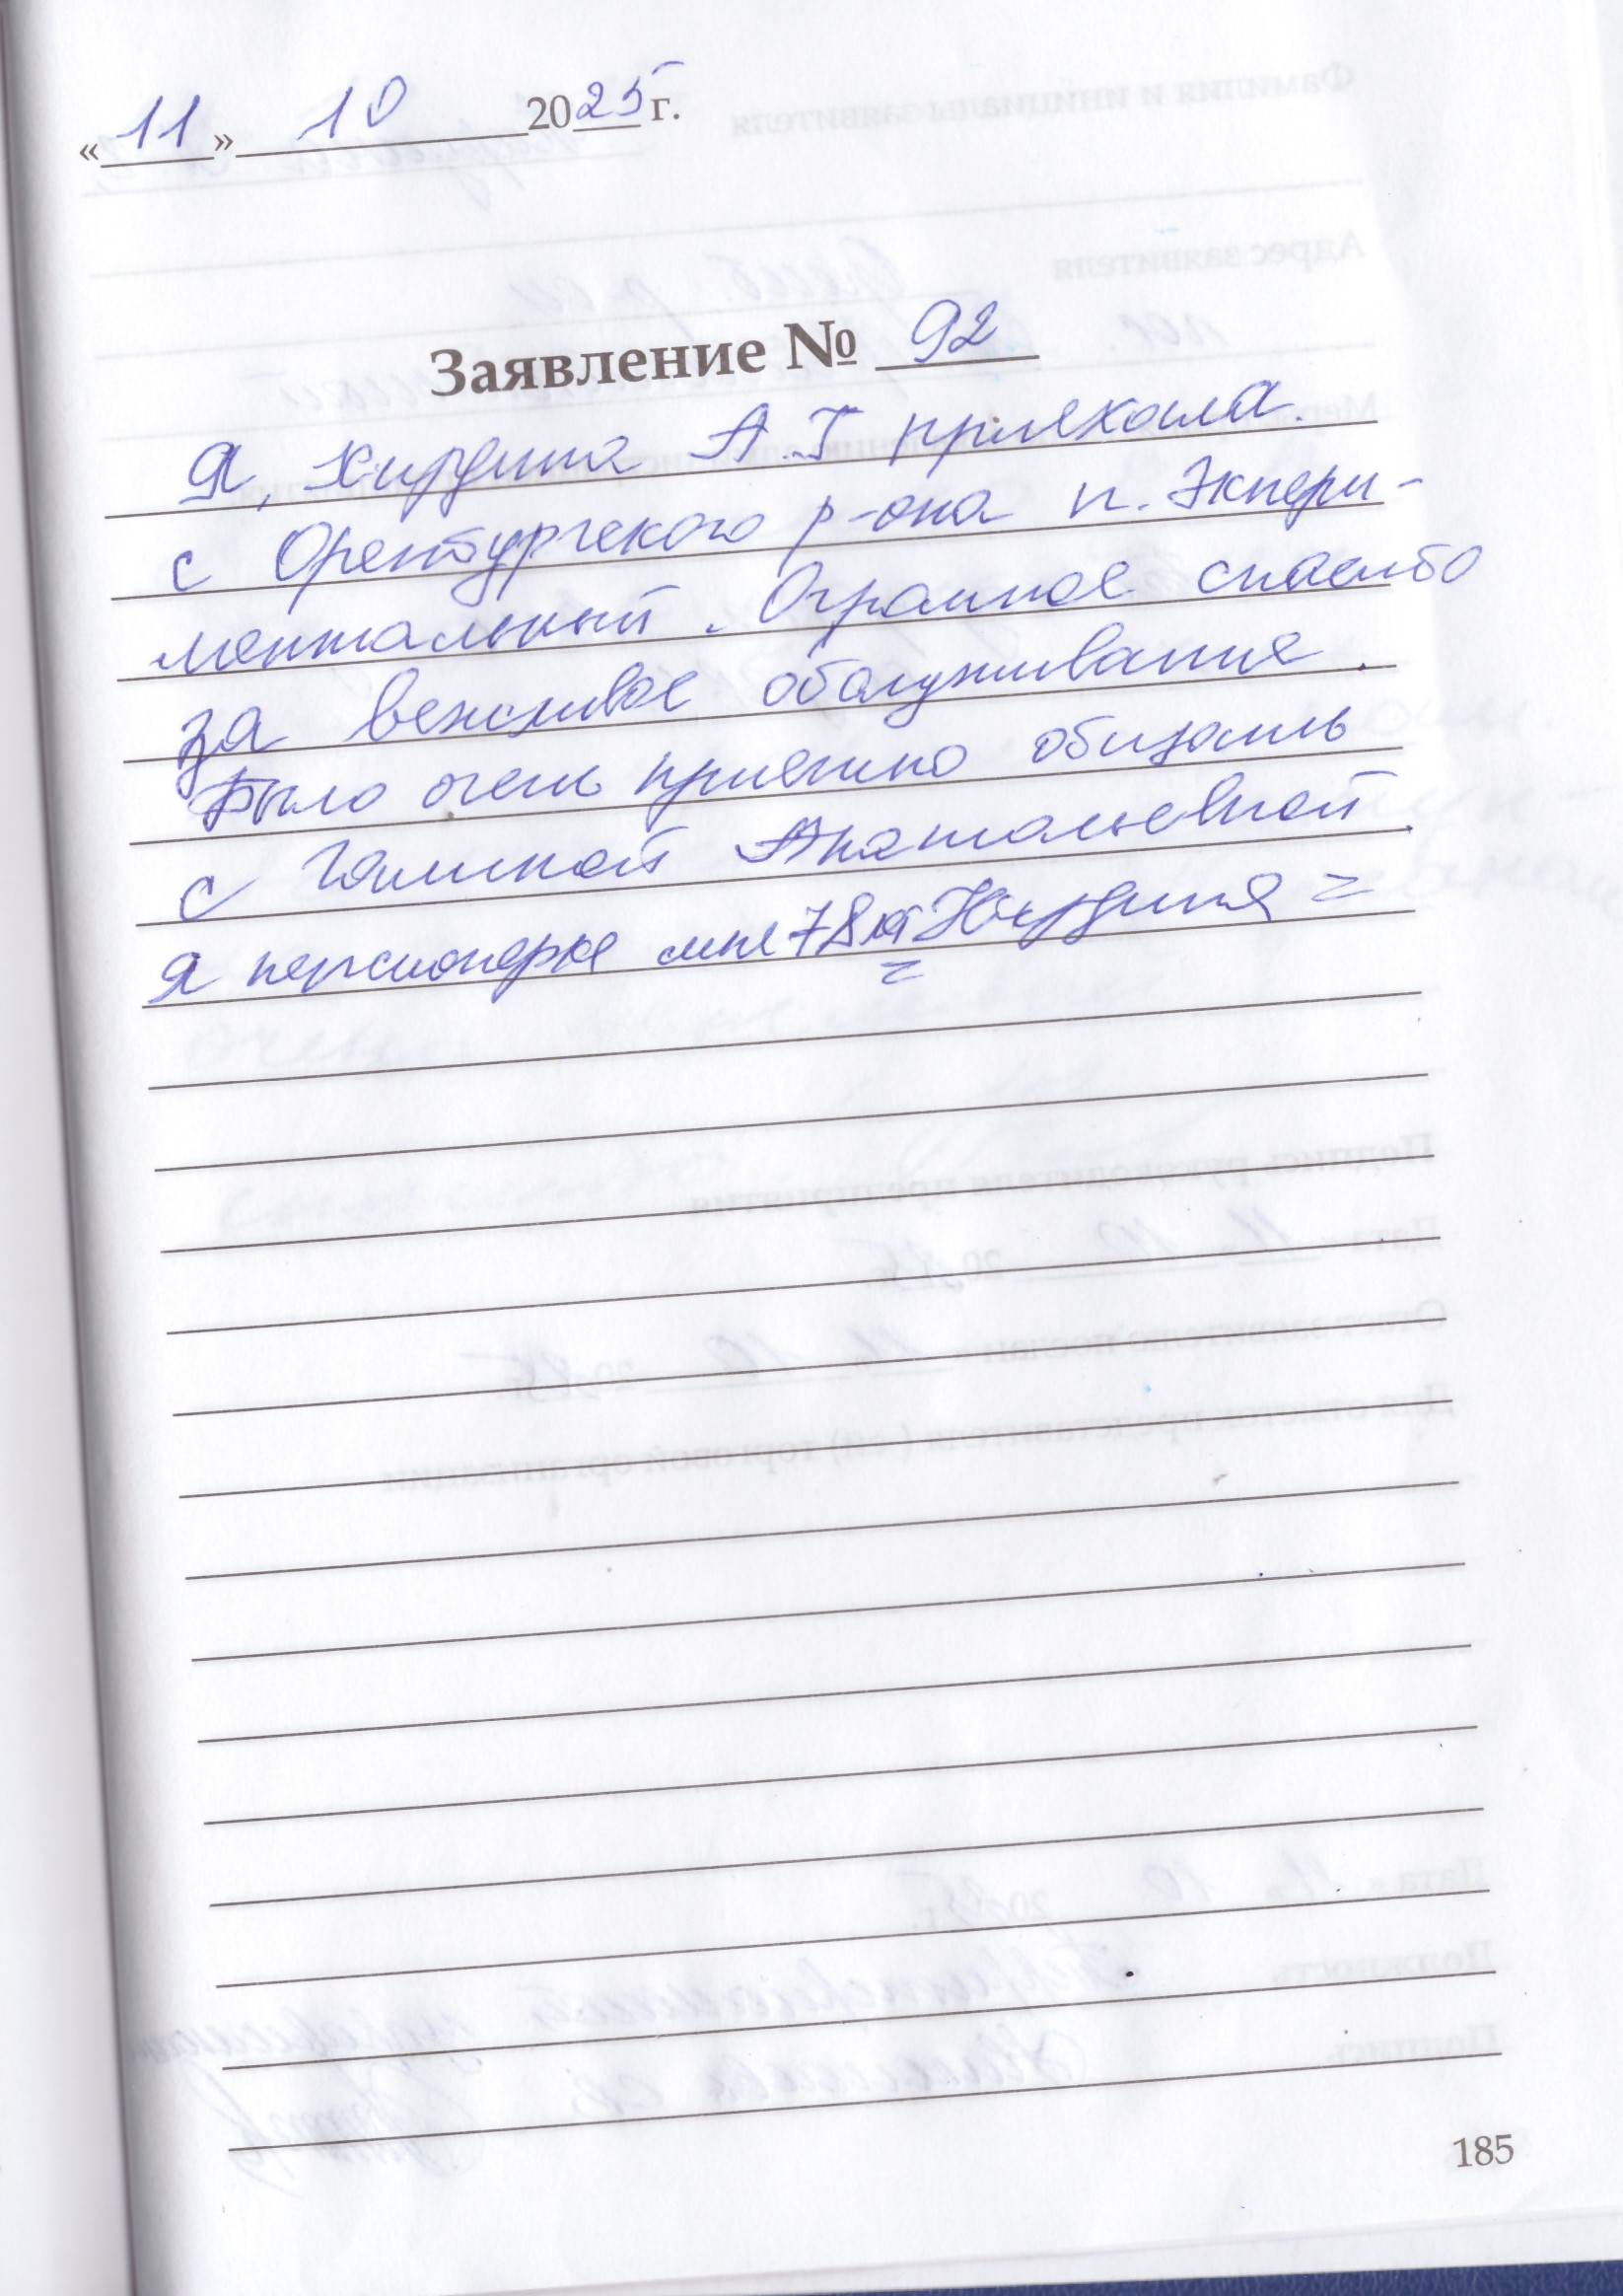 «11» 10 2025 г.
Заявление № 92
Я, Хирдина А.Г приехала.
с Оренбургского р-она п. Экпери-
ментальный. Огромное спасибо
за вежливое обслуживание.
Было очень приятно общаться
с Галиной Анатольевной.
Я пенсионерка мне 78 лет
185